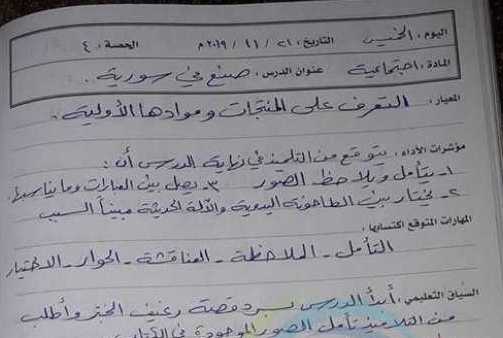 اليوم: الخميس التاريخ: ٢١ / ١١ / ٢٠١٩ م الحصة: ٤
المادة: اجتماعية عنوان الدرس: صنع في سورية.
المعيار: التعرف على المنتجات وموادها الأولية.
مؤشرات الأداء: يتوقع من التلميذ في نهاية الدرس أن:
١- يتأمل ويلاحظ الصور ٣- يصل بين العبارات وما يناسبها
٢- يختار بين الطاحونة اليدوية والآلة الحديثة مبيناً السبب
المهارات المتوقع اكتسابها:
التأمل - الملاحظة - المناقشة - الحوار - الاختيار
السياق التعليمي: أبدأ الدرس بسرد قصة رغيف الخبز وأطلب
من التلاميذ تأمل الصور الموجودة في الكتاب